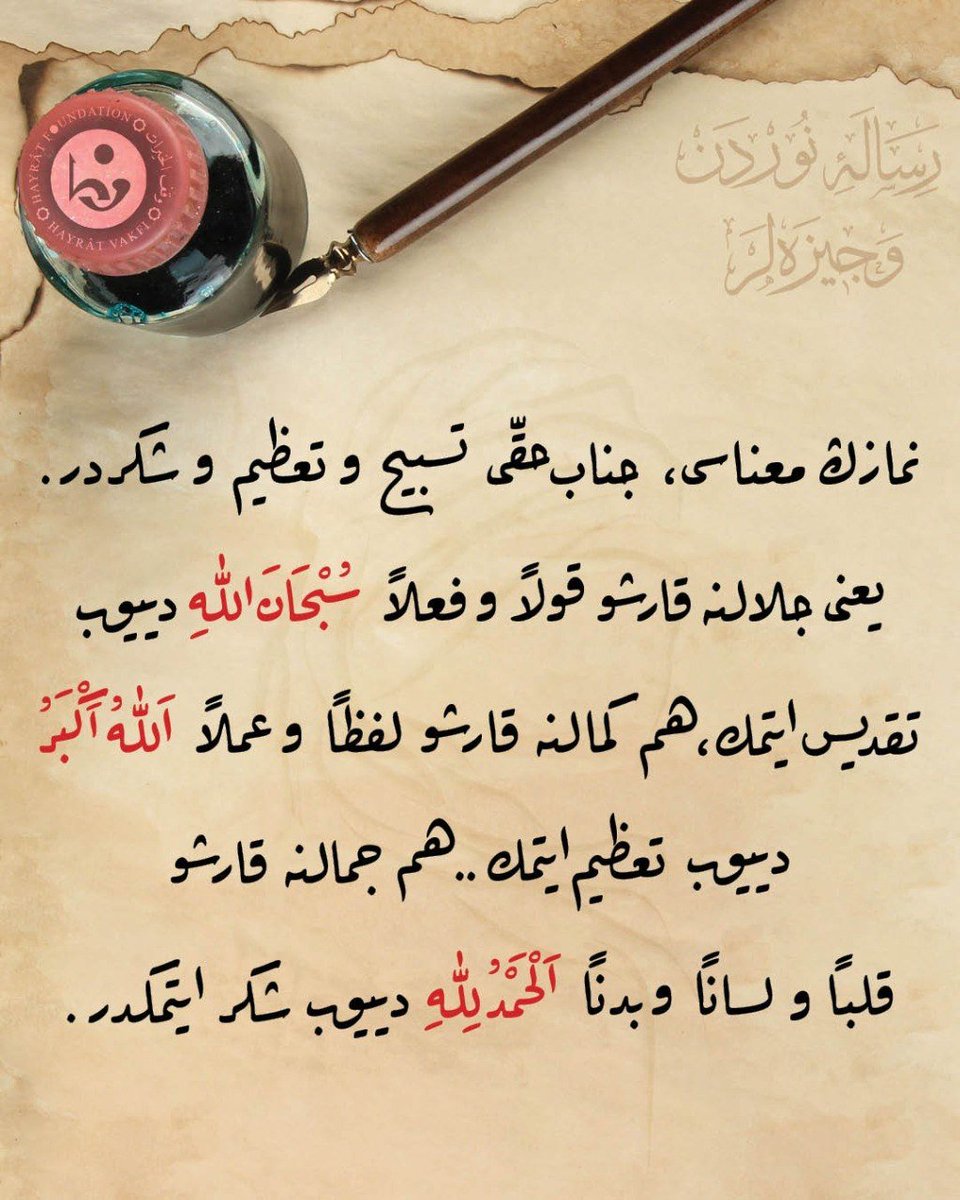 HAYRÂT FOUNDATION
وقف الخيرات
HAYRÂT VAKFI
رِسَالَهِٔ نُورْدَن
وَجِيزَه لَر
نمازڭ معناسی، جناب حقّی تسبیح و تعظیم و شكردر.
یعنی جلالنه قارشو قولاً و فعلاً سُبْحَانَ اللّٰهِ دییوب
تقدیس ایتمك، هم كمالنه قارشو لفظاً و عملاً اَللّٰهُ اَكْبَرُ
دییوب تعظیم ایتمك.. هم جمالنه قارشو
قلباً و لساناً و بدناً اَلْحَمْدُ لِلّٰهِ دییوب شكر ایتمكدر.